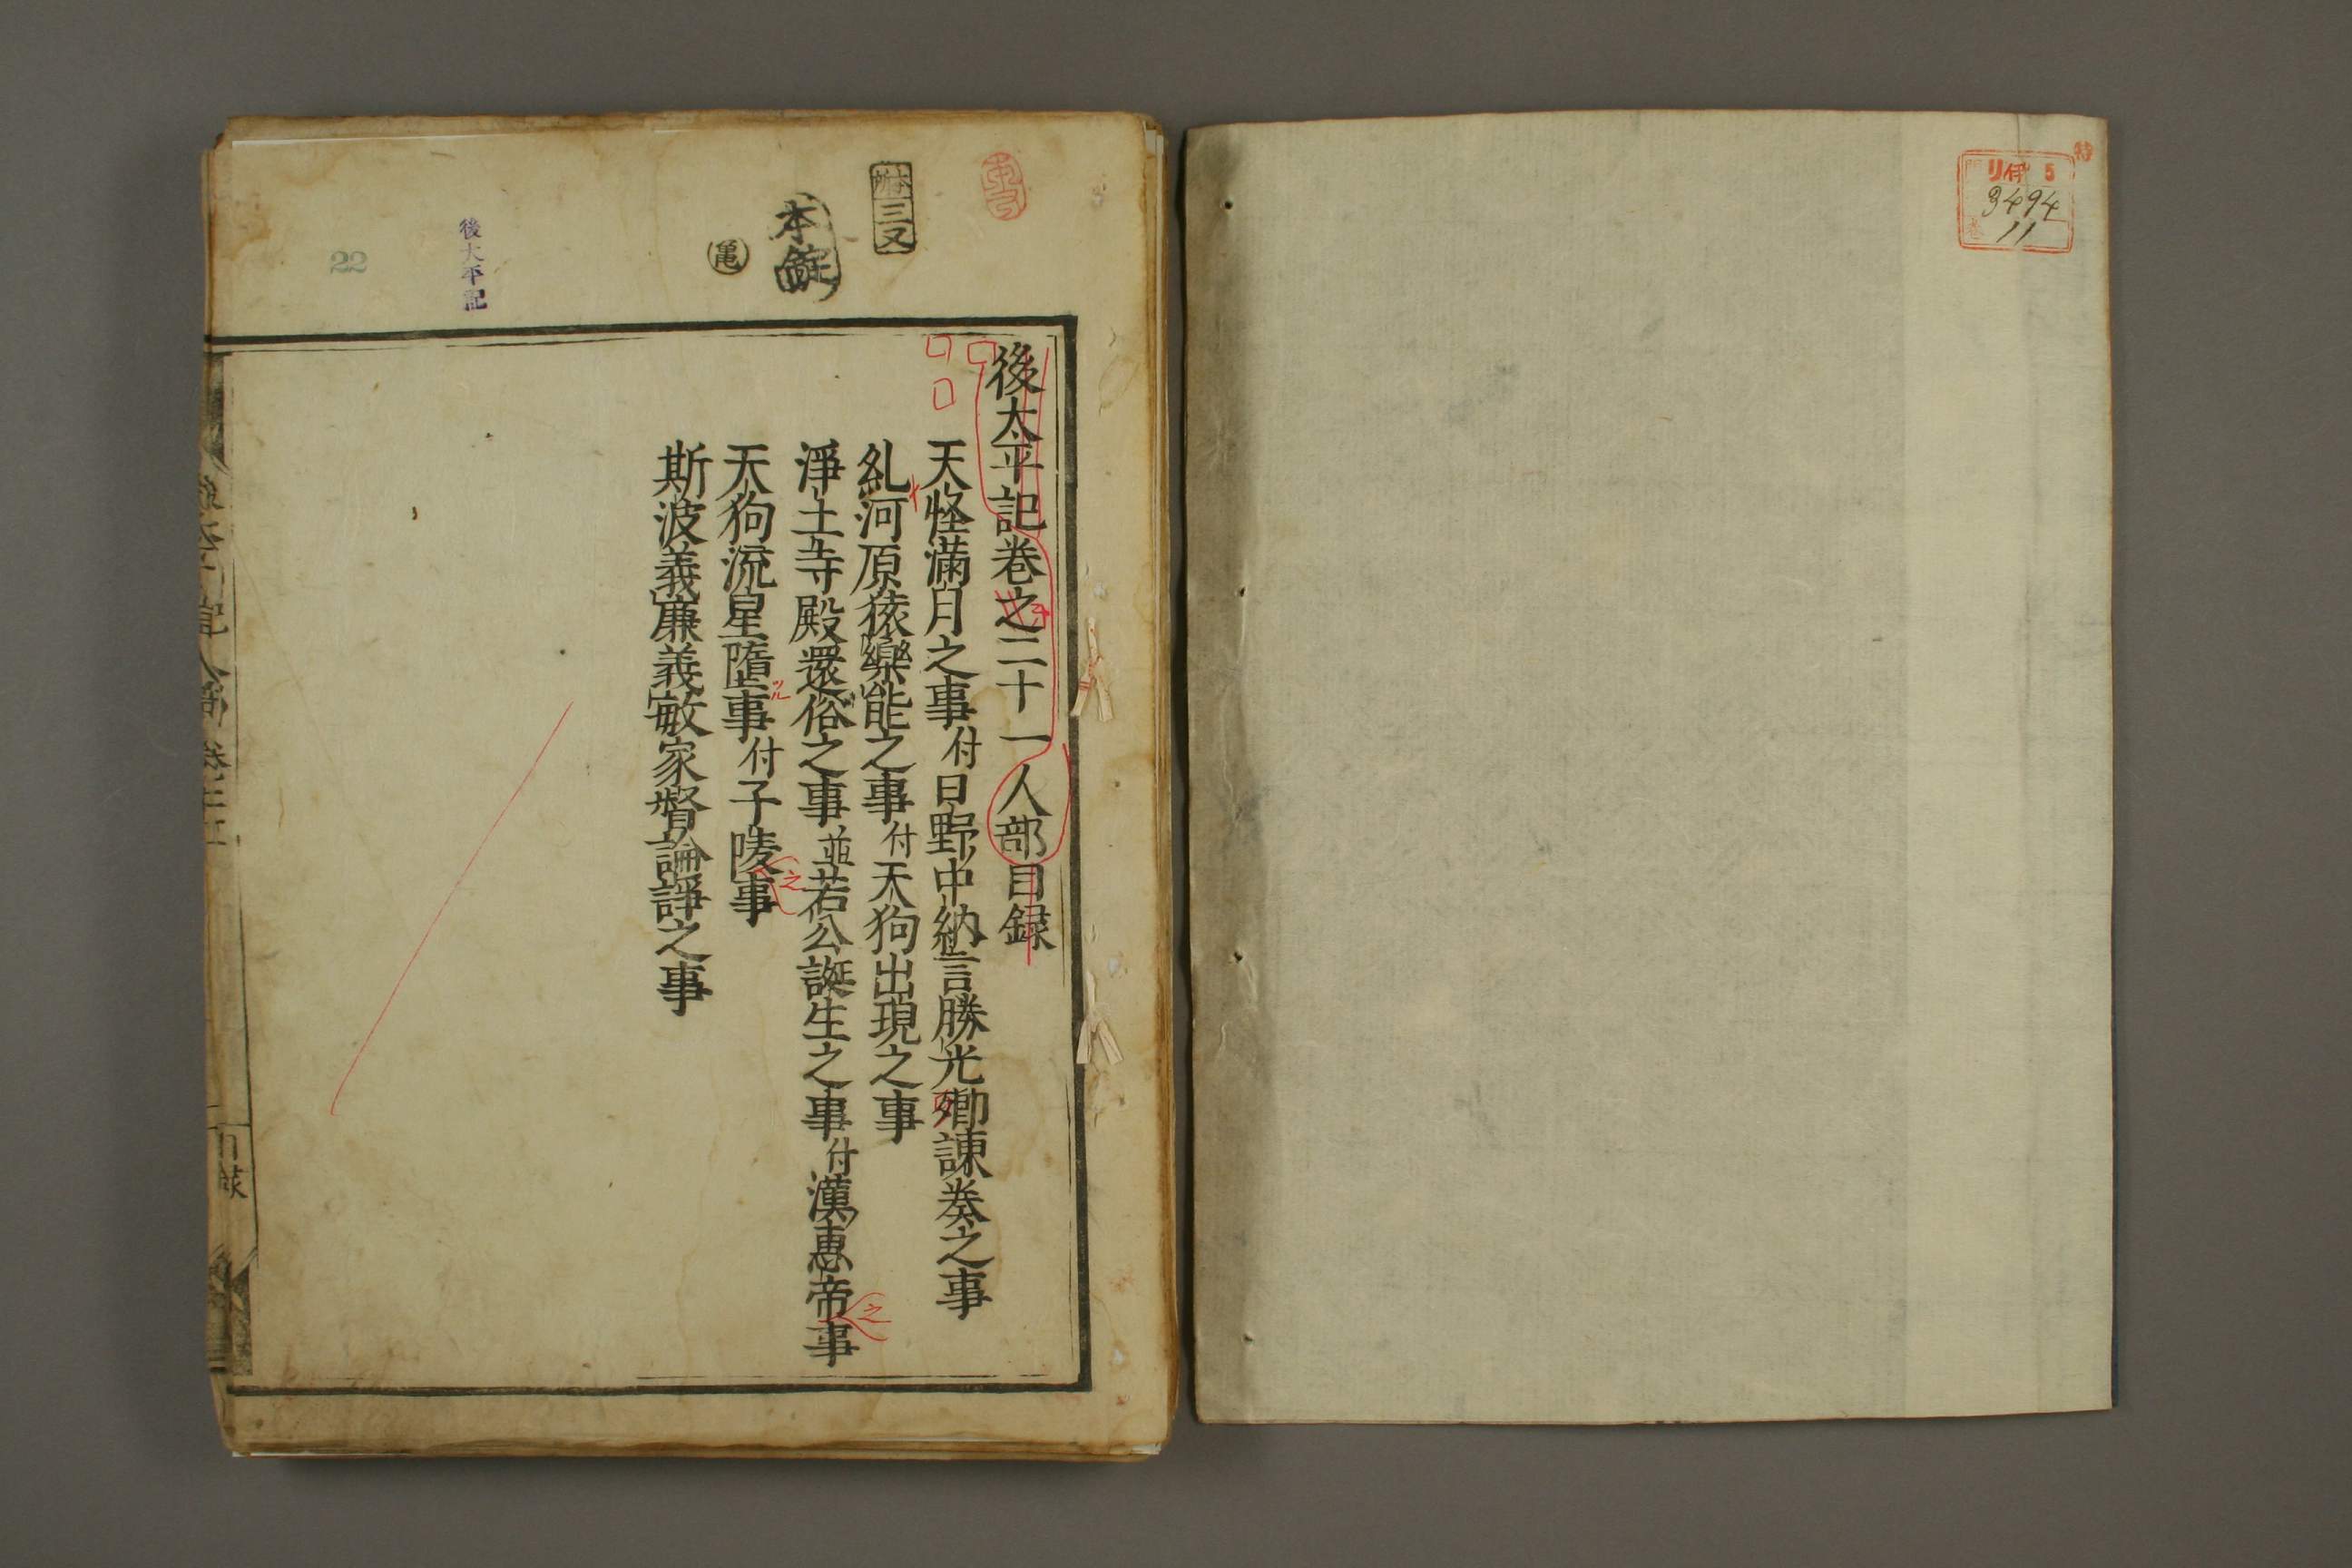 特
リ伊 5
3494
11
本
三又
本錠
亀
後太平記
22
後太平記巻之二十一人部目録
天怪滿月之事付日野中納言勝光卿諌奏之事
糺河原猿樂能之事付天狗出現之事
淨土寺殿還俗之事並若公誕生之事付漢惠帝事
之
天狗流星墮事付子陵事
ツル
之
斯波義廉義敏家督論諍之事